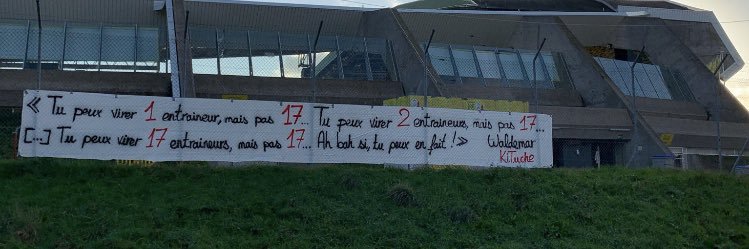 « Tu peux virer 1 entraineur, mais pas 17... Tu peux virer 2 entraineurs, mais pas 17...
[...] Tu peux virer 17 entraineurs, mais pas 17... Ah bah si, tu peux en fait ! » Waldemar
KiTuche